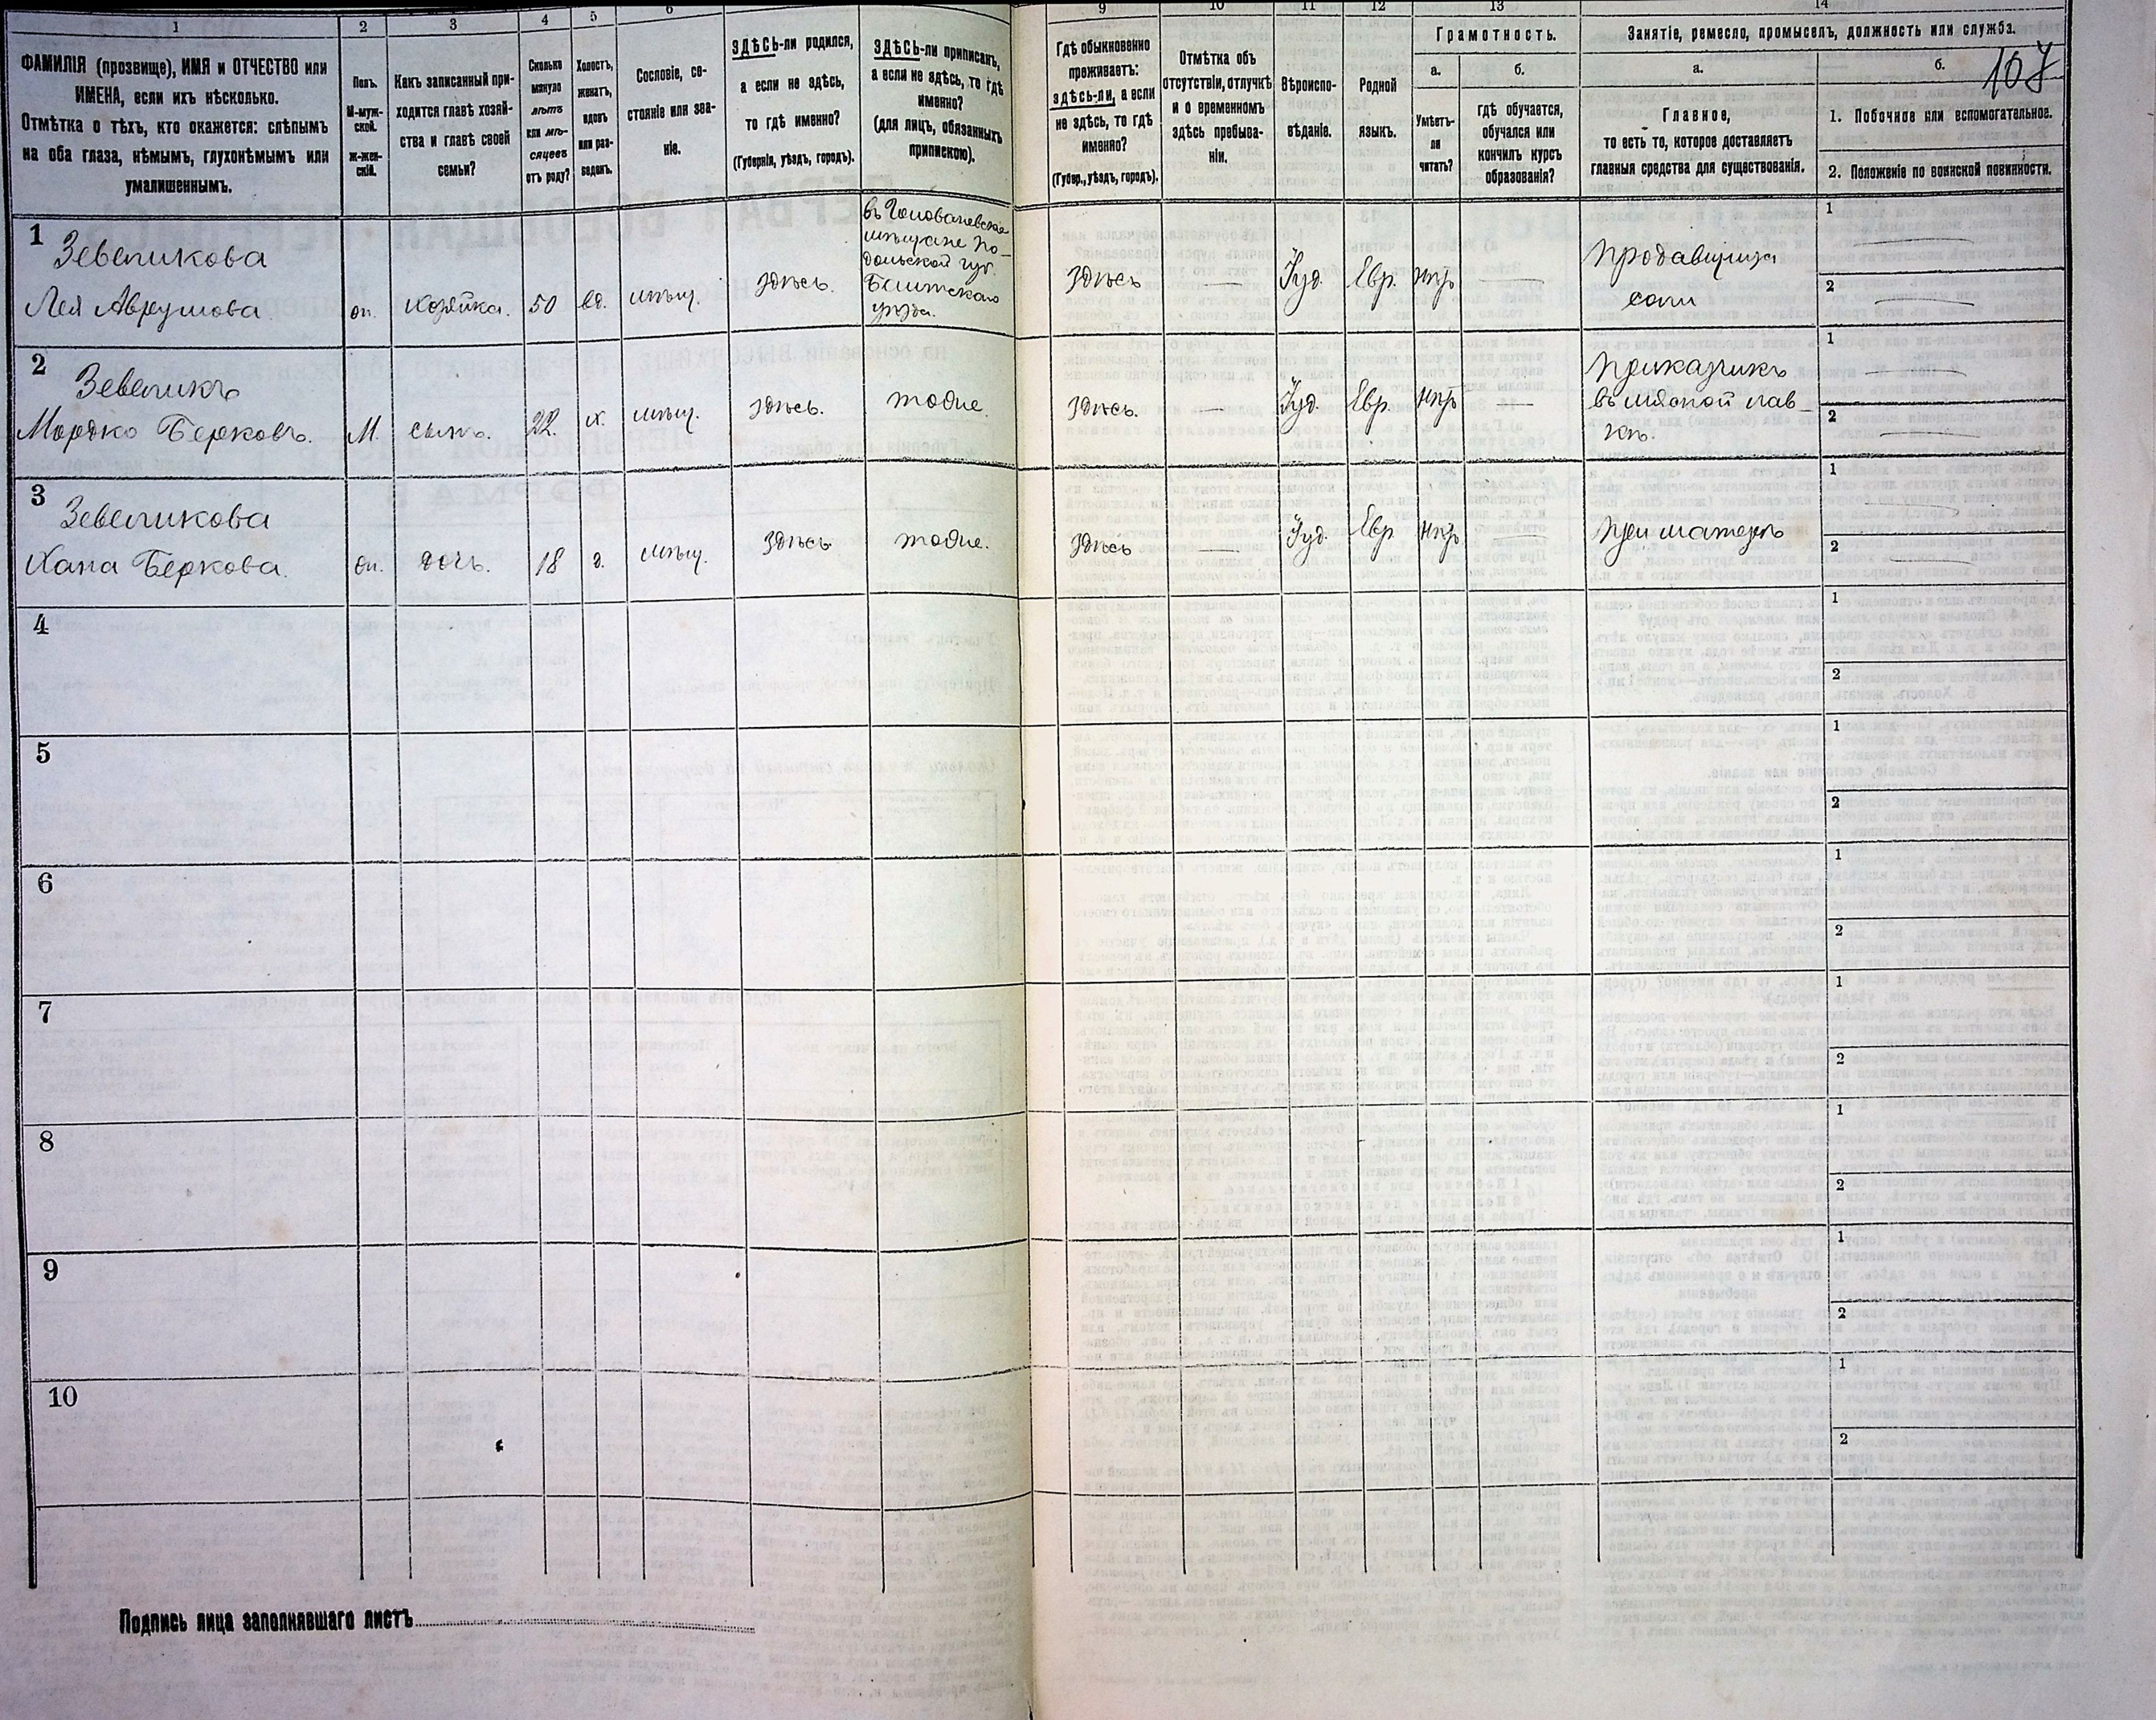 1
2
3
4
5
6
9
10
11
12
13
14
ФАМИЛІЯ (прозвище), ИМЯ и ОТЧЕСТВО или
ИМЕНА, если ихъ нѣсколько.
Отмѣтка о тѣхъ, кто окажется: слѣпымъ
на оба глаза, нѣмымъ, глухонѣмымъ или
умалишеннымъ.
Полъ.
М-муж-
ской.
Ж-жен-
скій.
Какъ записанный при-
ходится главѣ хозяй-
ства и главѣ своей
семьи?
Сколько
минуло
лѣтъ
или мѣ-
сяцевъ
отъ роду?
Холостъ,
женатъ,
вдовъ
или раз-
веденъ.
Сословіе, со-
стояніе или зва-
ніе.
ЗДѢСЬ-ли родился,
а если не здѣсь,
то гдѣ именно?
(Губернія, уѣздъ, городъ).
ЗДѢСЬ-ли приписанъ,
а если не здѣсь, то гдѣ
именно?
(для лицъ, обязанныхъ
припискою).
Гдѣ обыкновенно
проживаетъ:
здѣсь-ли, а если
не здѣсь, то гдѣ
именно?
(Губер., уѣздъ, городъ).
Отмѣтка объ
отсутствіи, отлучкѣ
и о временномъ
здѣсь пребыва-
ніи.
Вѣроиспо-
вѣданіе.
Родной
языкъ.
Грамотность.
а.
Умѣетъ-
ли
читать?
б.
гдѣ обучается,
обучался или
кончилъ курсъ
образованія?
Занятіе, ремесло, промыселъ, должность или служба.
а.
Главное,
то есть то, которое доставляетъ
главныя средства для существованія.
б.
107
1. Побочное или вспомогательное.
2. Положеніе по воинской повинности.
1
Зевеликова
Лея Аврумова
хозяйка.
50
вд.
мѣщ.
здѣсь.
въ Головановскіе
мѣщане По-
дольской губ.
Балтскаго
уѣзда.
здѣсь
—
Іуд.
Евр.
—
продавщица
соли
1 —
2 —
2
Зевеликъ
Мордко Берковъ.
М.
сынъ.
22.
х.
мѣщ.
здѣсь.
тоже.
здѣсь.
—
Іуд.
Евр.
—
приказчикъ
въ мясной лав-
кѣ.
1 —
2 —
3
Зевеликова
Хана Беркова.
дочь.
18
д.
мѣщ.
здѣсь
тоже.
здѣсь
—
Іуд.
Евр.
—
при матери
1 —
2 —
4
1
2
5
1
2
6
1
2
7
1
2
8
1
2
9
1
2
10
1
2
Подпись лица заполнявшаго листъ